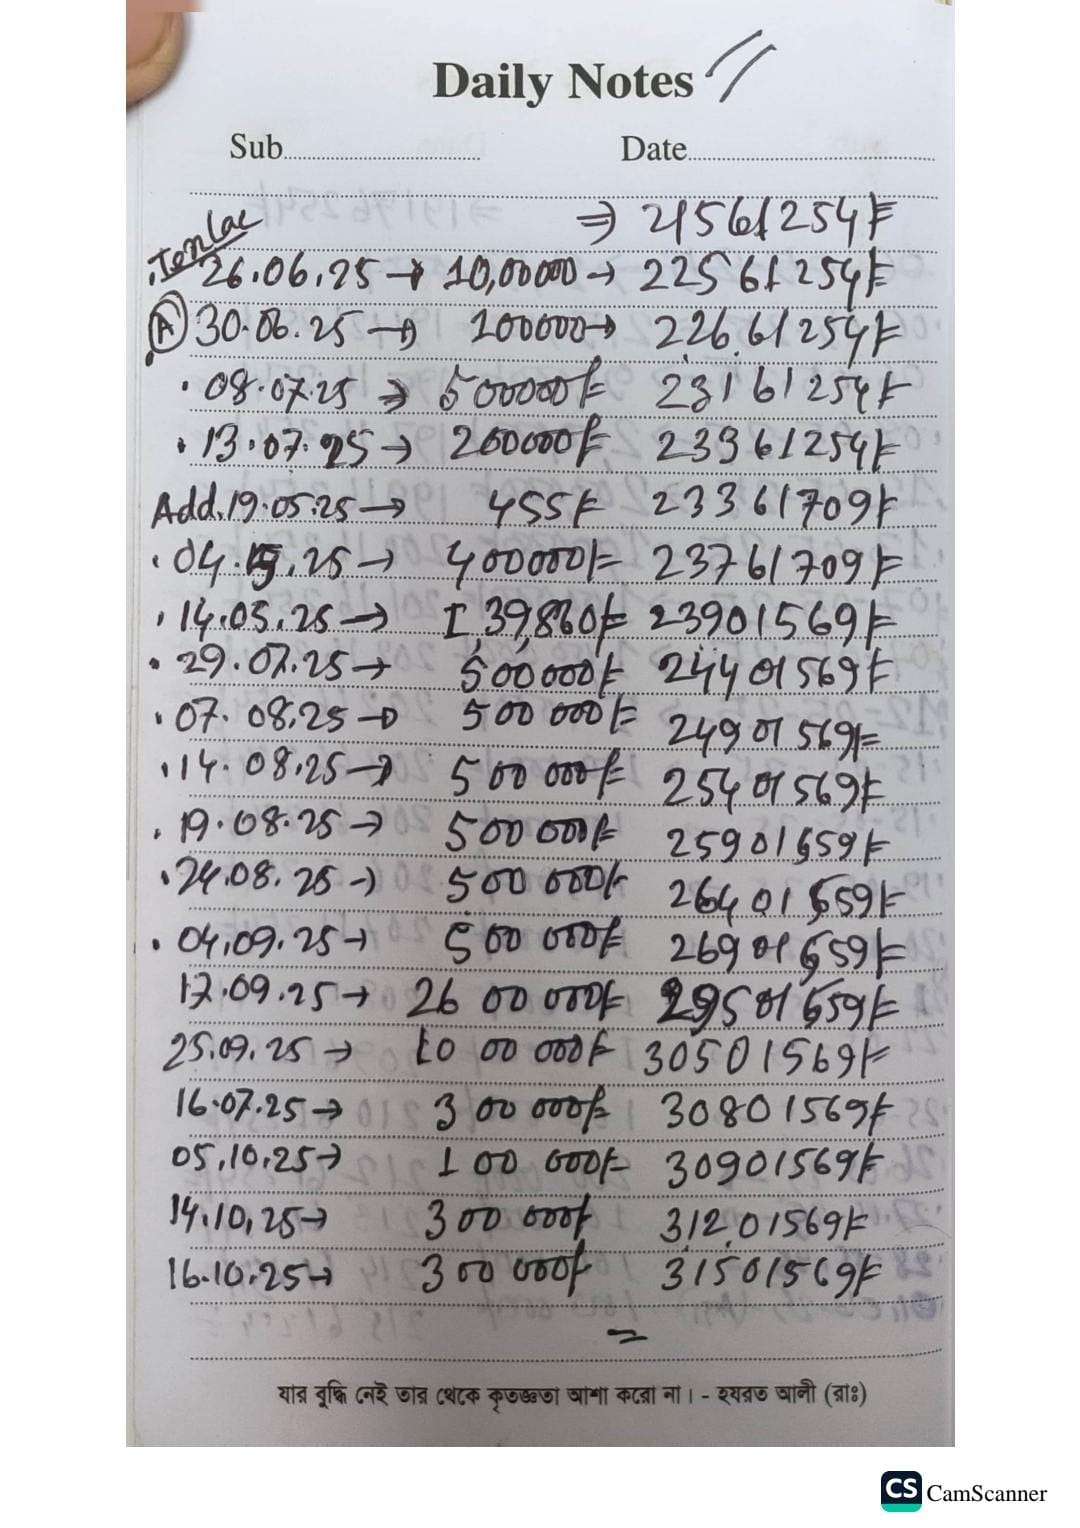 Daily Notes //
Sub.......... Date..........
⇒ 21561254/=
Ten Lac
26.06.25 → 10,00000 → 22561254/=
(A) 30.06.25 → 100000 → 22661254/=
08.07.25 → 500000/= 23161254/=
13.07.25 → 200000/= 23361254/=
Add. 19.05.25 → 455/= 23361709/=
04.15.25 → 400000/= 23761709/=
14.05.25 → 1,39,860/= 23901569/=
29.07.25 → 500000/= 24401569/=
07.08.25 → 500 000/= 24901569/=
14.08.25 → 500 000/= 25401569/=
19.08.25 → 500 000/= 25901659/=
24.08.25 → 500 000/= 26401659/=
04.09.25 → 500 000/= 26901659/=
17.09.25 → 26 00 000/= 29501659/=
25.09.25 → 10 00 000/= 30501569/=
16.07.25 → 3 00 000/= 30801569/=
05.10.25 → 1 00 000/= 30901569/=
14.10.25 → 300 000/= 31201569/=
16.10.25 → 300 000/= 31501569/=
=
যার বুদ্ধি নেই তার থেকে কৃতজ্ঞতা আশা করো না। - হযরত আলী (রাঃ)
CS CamScanner